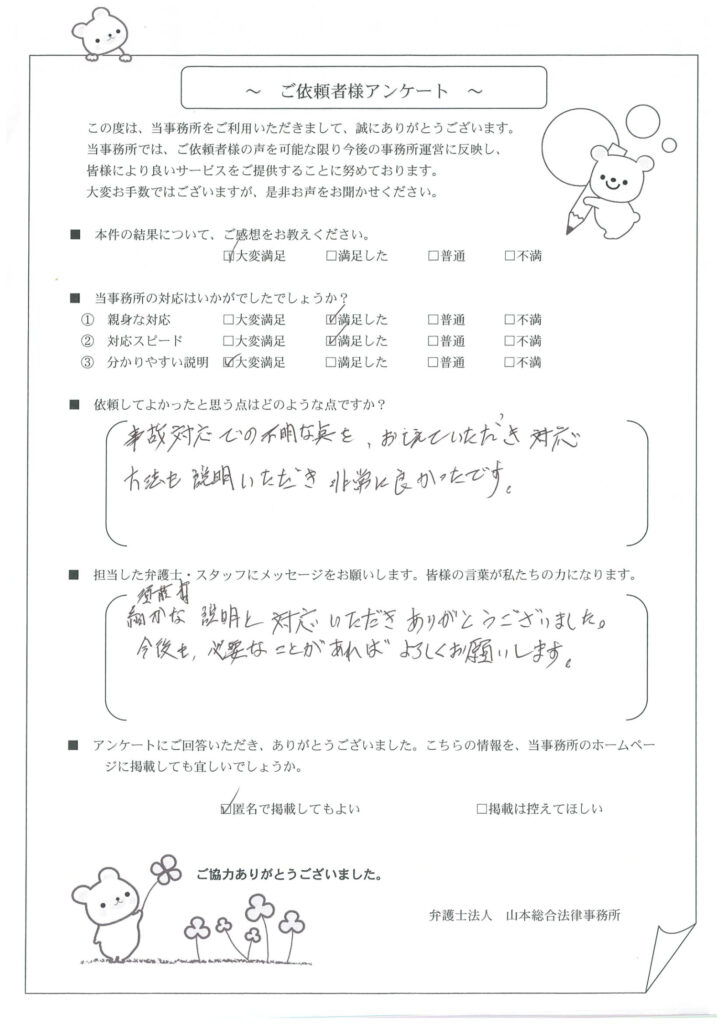 ～ ご依頼者様アンケート ～
この度は、当事務所をご利用いただきまして、誠にありがとうございます。
当事務所では、ご依頼者様の声を可能な限り今後の事務所運営に反映し、
皆様により良いサービスをご提供することに努めております。
大変お手数ではございますが、是非お声をお聞かせください。
■ 本件の結果について、ご感想をお教えください。
☑大変満足 □満足した □普通 □不満
■ 当事務所の対応はいかがでしたでしょうか？
① 親身な対応 □大変満足 ☑満足した □普通 □不満
② 対応スピード □大変満足 ☑満足した □普通 □不満
③ 分かりやすい説明 ☑大変満足 □満足した □普通 □不満
■ 依頼してよかったと思う点はどのような点ですか？
事故対応での不明な点を、お教えていただき 対応
方法も 説明いただき 非常に良かったです。
■ 担当した弁護士・スタッフにメッセージをお願いします。皆様の言葉が私たちの力になります。
細かな 説明と 対応いただき ありがとうございました。
今後も、必要なことがあれば よろしくお願いします。
■ アンケートにご回答いただき、ありがとうございました。こちらの情報を、当事務所のホームペー
ジに掲載しても宜しいでしょうか。
☑匿名で掲載してもよい □掲載は控えてほしい
ご協力ありがとうございました。
弁護士法人 山本総合法律事務所